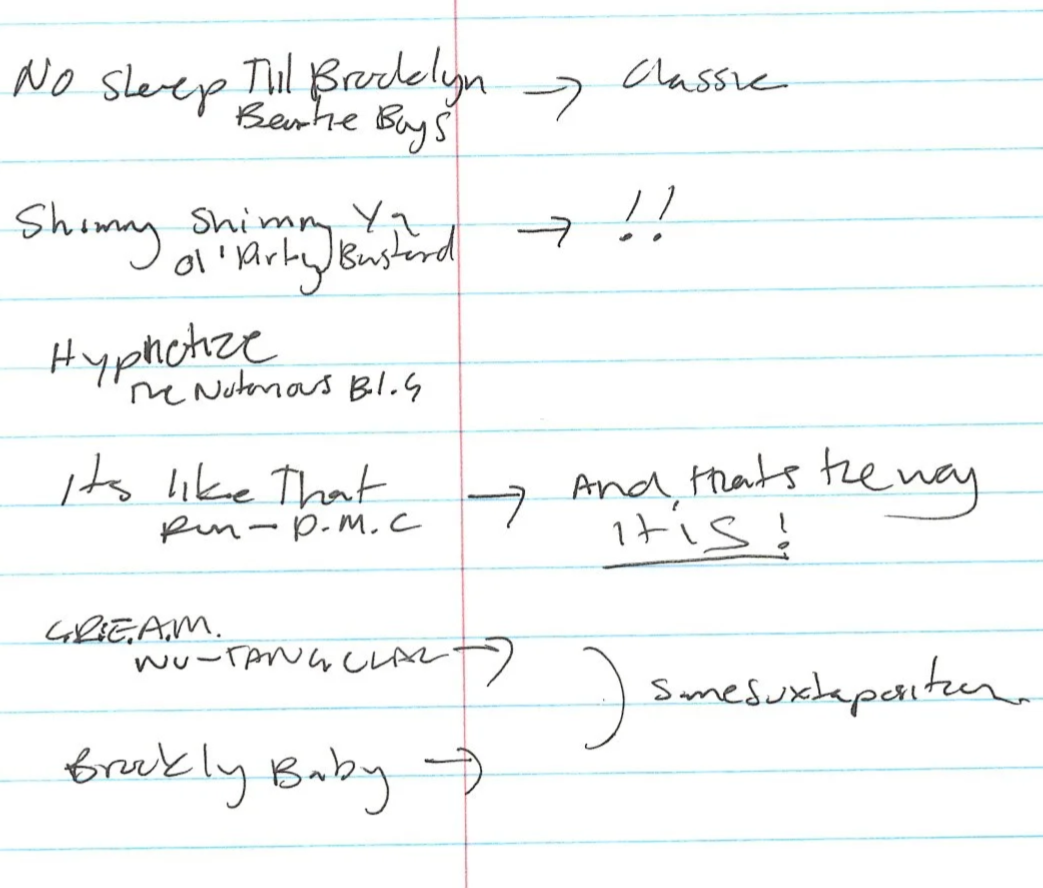 No Sleep Till Brooklyn → Classic
Beastie Boys
Shimmy Shimmy Ya → !!
Ol' Dirty Bastard
Hypnotize
The Notorious B.I.G
Its like That → And that's the way
Run-D.M.C it is!
C.R.E.A.M.
WU-TANG CLAN →
) some juxtaposition
Brookly Baby →